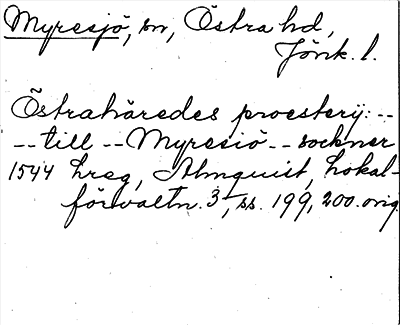 Myresjö, sn, Östra hd,
Jönk. l.
Östrahäredes proesterij: --
-- till -- Myresiö -- sockner
1544 hreg, Almquist, Lokal-
förvaltn. 3, ss. 199, 200. orig.